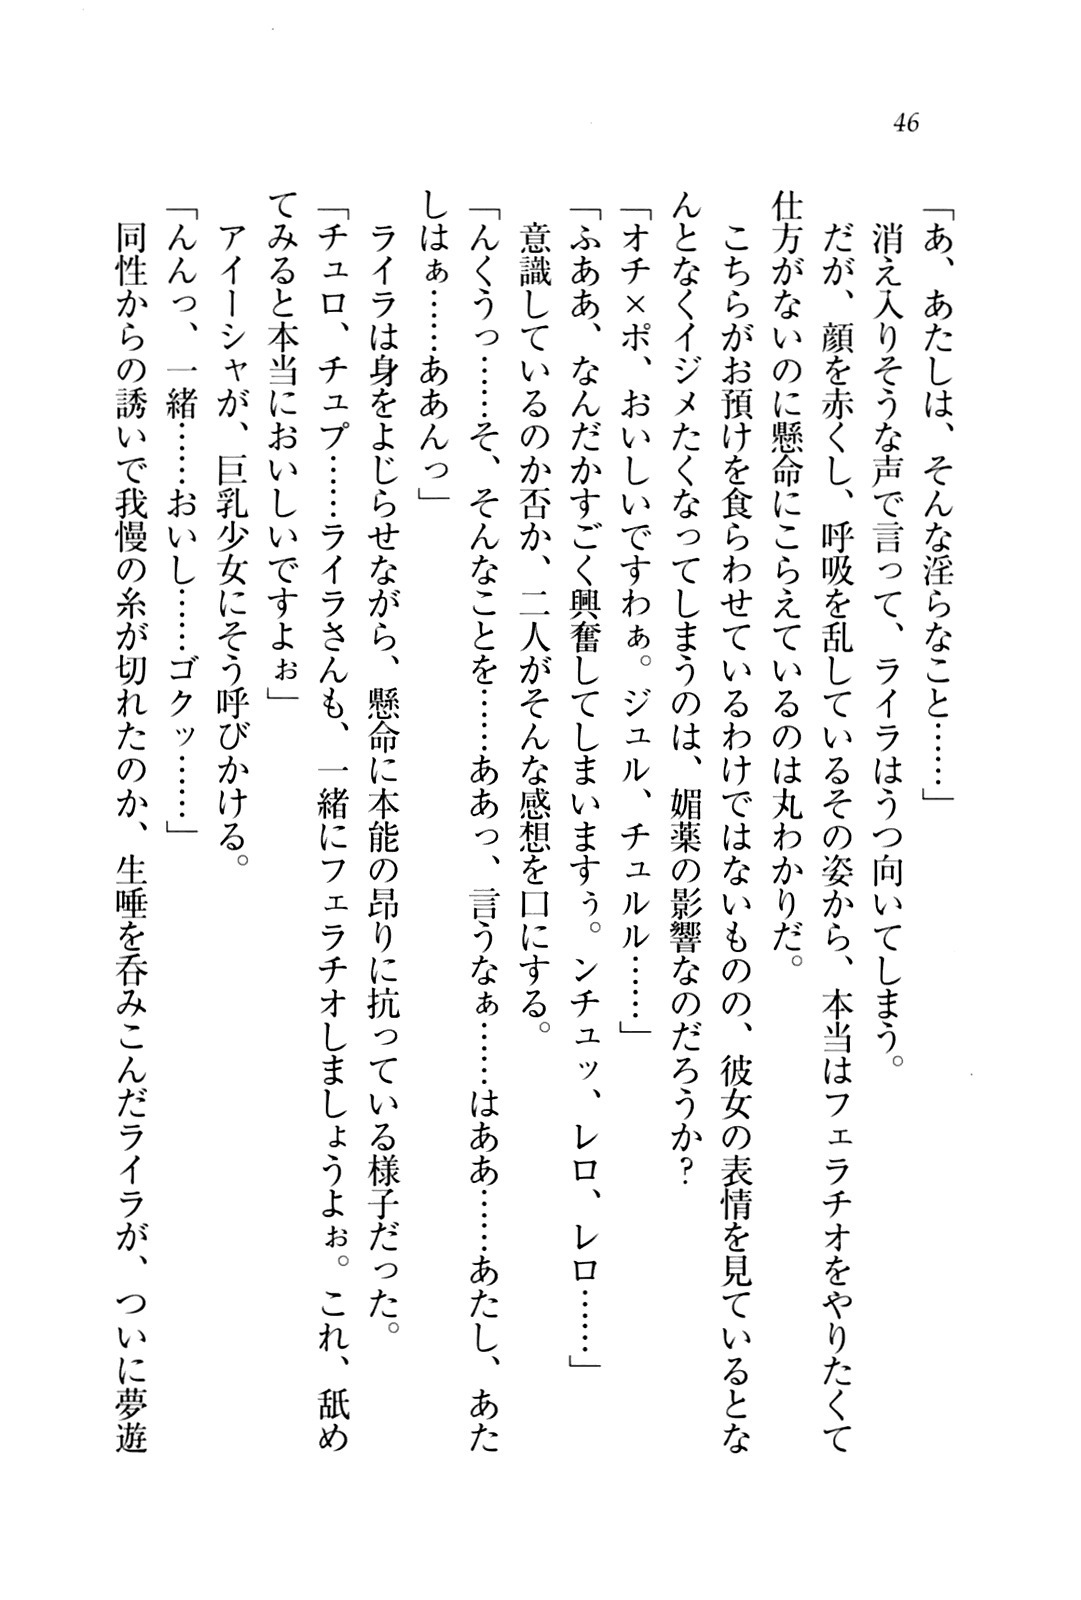 46
「あ、あたしは、そんな淫らなこと……」
消え入りそうな声で言って、ライラはうつ向いてしまう。
だが、顔を赤くし、呼吸を乱しているその姿から、本当はフェラチオをやりたくて
仕方がないのに懸命にこらえているのは丸わかりだ。
こちらがお預けを食らわせているわけではないものの、彼女の表情を見ているとな
んとなくイジメたくなってしまうのは、媚薬の影響なのだろうか？
「オチ×ポ、おいしいですわぁ。ジュル、チュルル……」
「ふああ、なんだかすごく興奮してしまいますぅ。ンチュッ、レロ、レロ……」
意識しているのか否か、二人がそんな感想を口にする。
「んくうっ……そ、そんなことを……ああっ、言うなぁ……はああ……あたし、あた
しはぁ……ああんっ」
ライラは身をよじらせながら、懸命に本能の昂りに抗っている様子だった。
「チュロ、チュプ……ライラさんも、一緒にフェラチオしましょうよぉ。これ、舐め
てみると本当においしいですよぉ」
アイーシャが、巨乳少女にそう呼びかける。
「んんっ、一緒……おいし……ゴクッ……」
同性からの誘いで我慢の糸が切れたのか、生唾を呑みこんだライラが、ついに夢遊